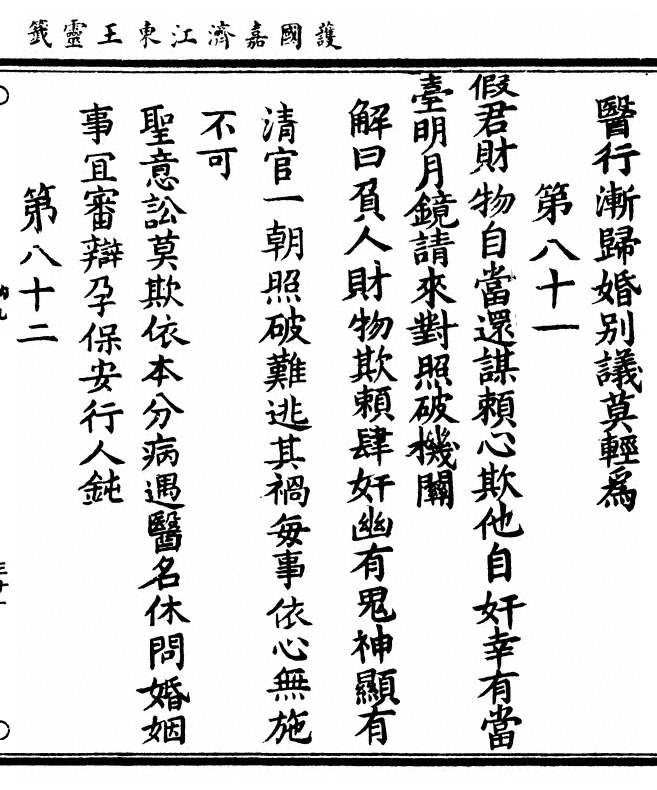 護國嘉濟江東王靈籤
醫行漸歸婚別議莫輕為
第八十一
假君財物自當還謀賴心欺他自奸幸有當
臺明月鏡請來對照破機關
解曰負人財物欺賴肆奸幽有鬼神顯有
清官一朝照破難逃其禍每事依心無施
不可
聖意訟莫欺依本分病遇醫名休問婚姻
事冝審辯孕保安行人鈍
第八十二